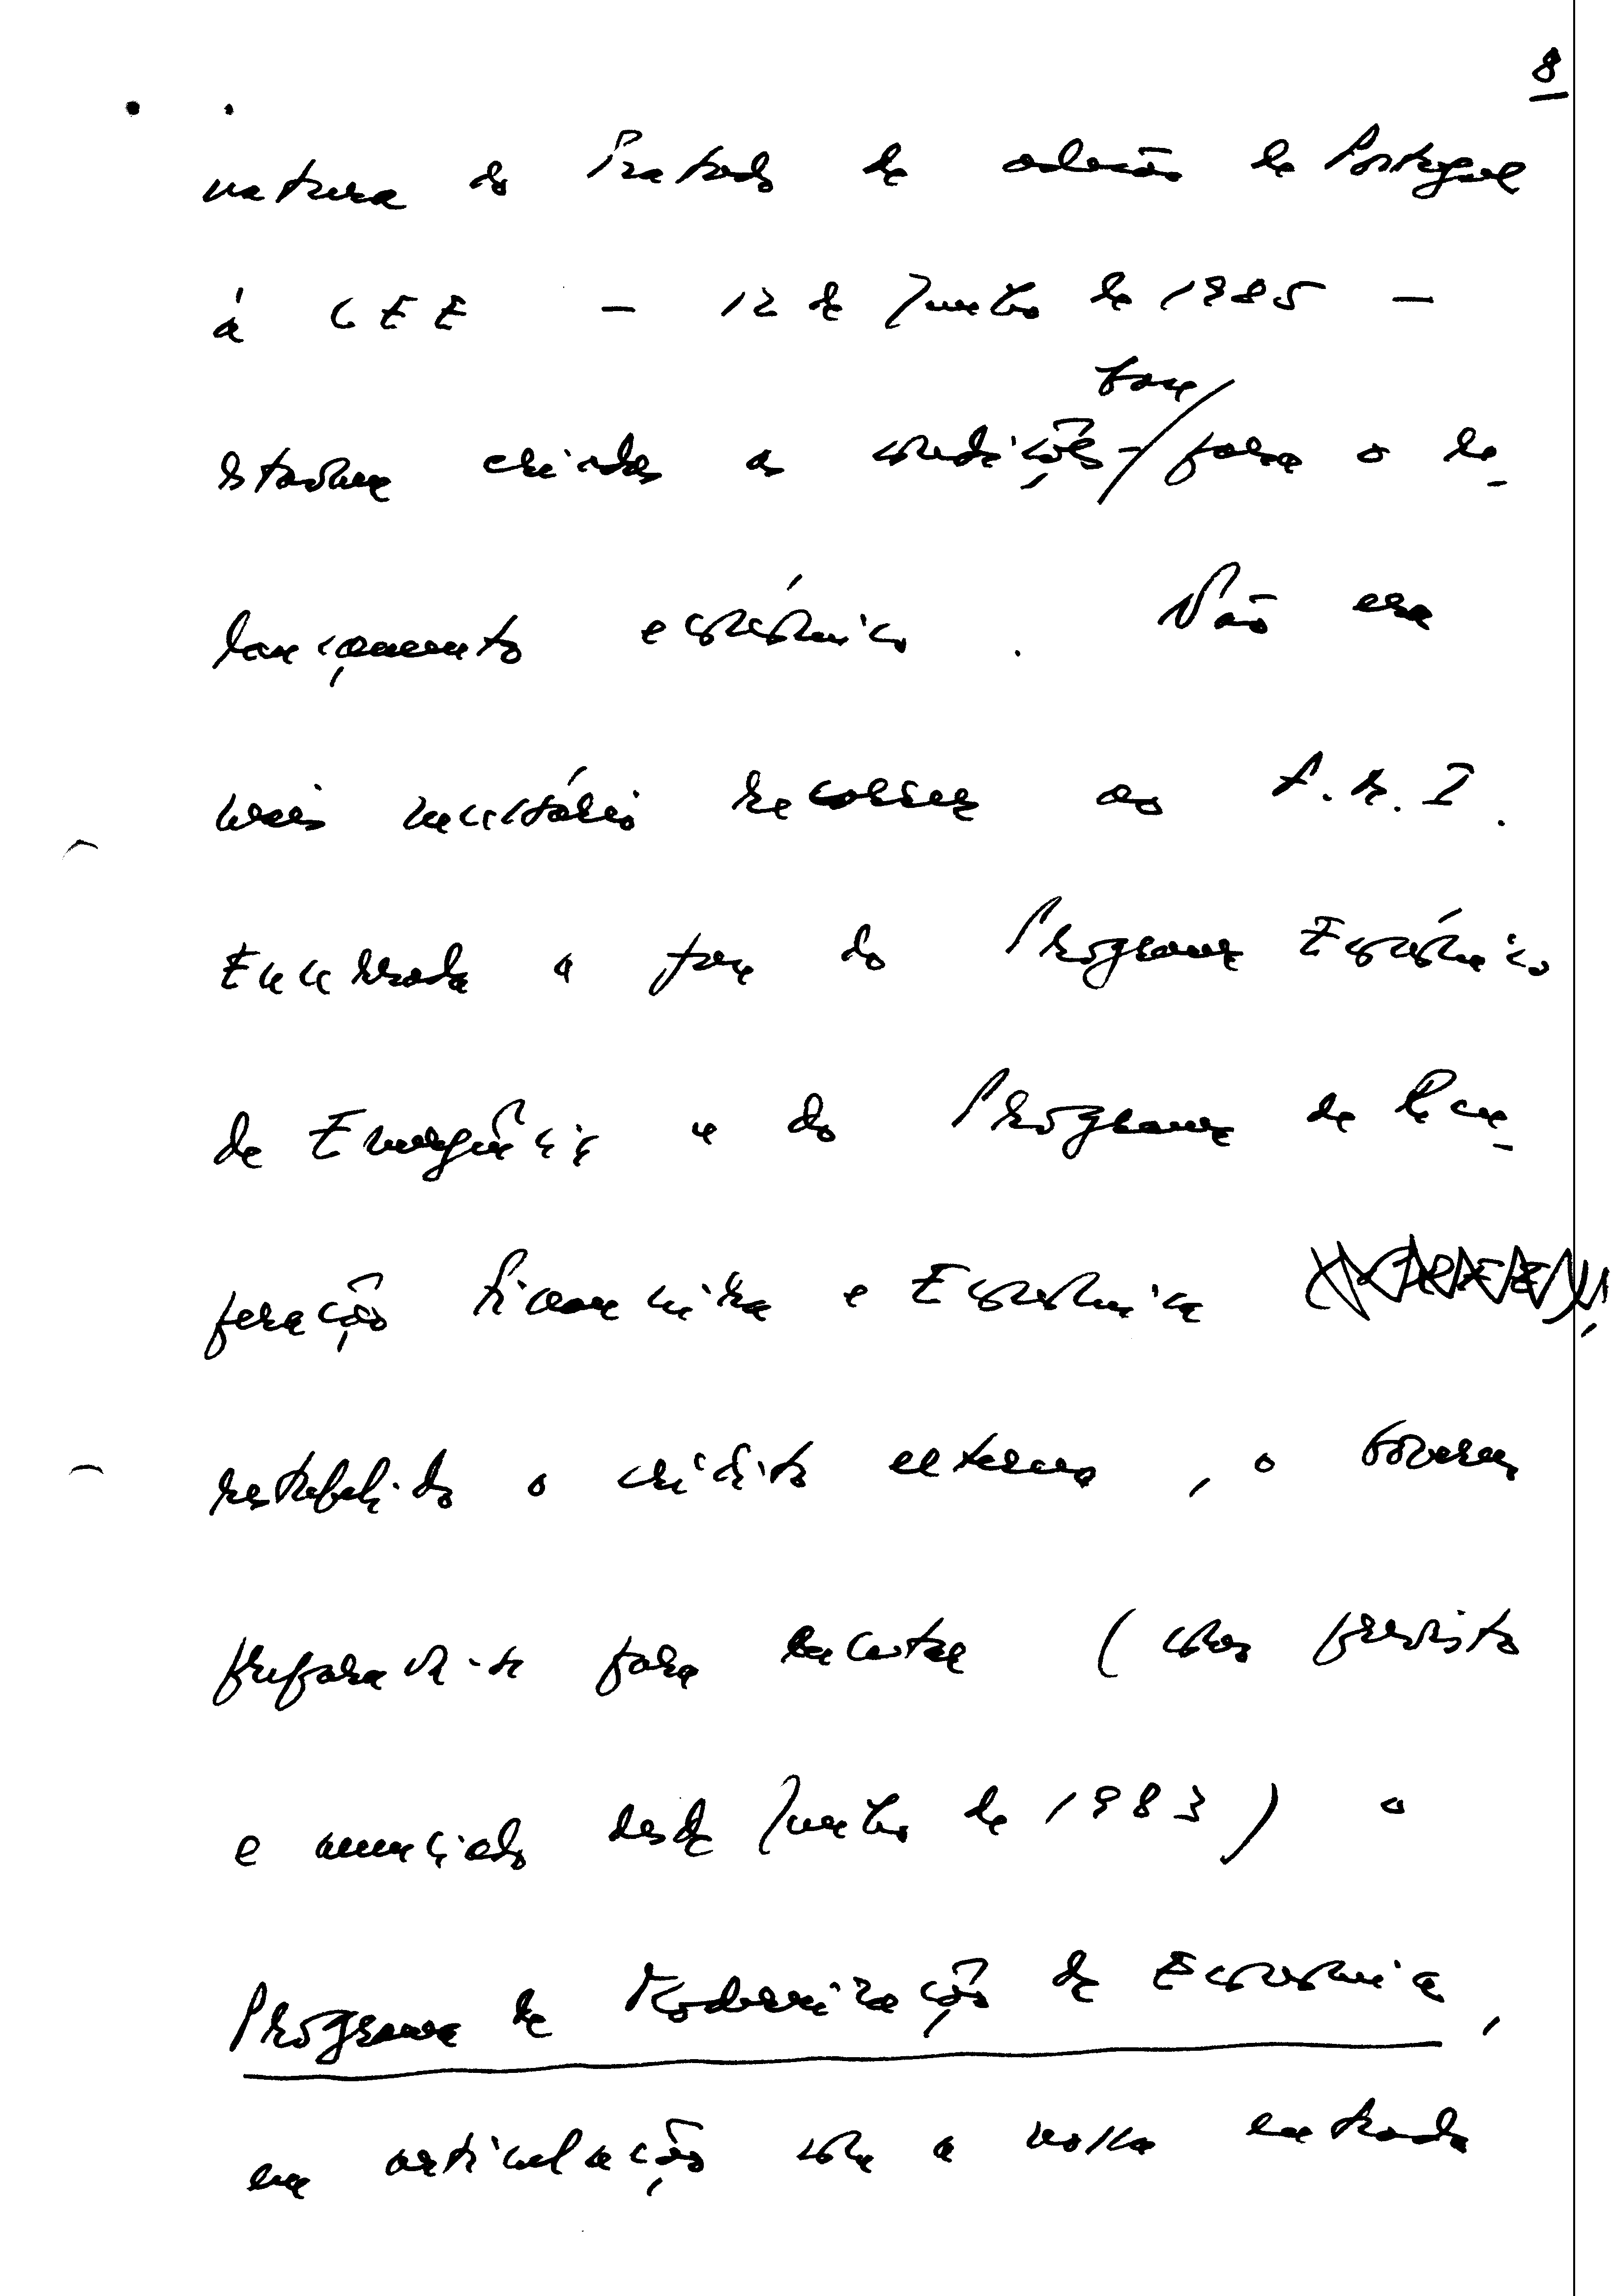 8
natura do Tratado de adesão de Portugal
à CEE - 12 de Junho de 1985 -
estavam criadas as condições para o re-
lançamento económico. Não era
mais necessário recorrer ao F.M.I.
Encerrada a fase do Programa Económico
de Emergência e do Programa de Recu-
peração Financeira e Económica,
restabelecido o crédito externo, o Governo
preparava-se para executar (como previsto
e anunciado desde Junho de 1983) o
Programa de Modernização da Economia,
em articulação com a nossa entrada